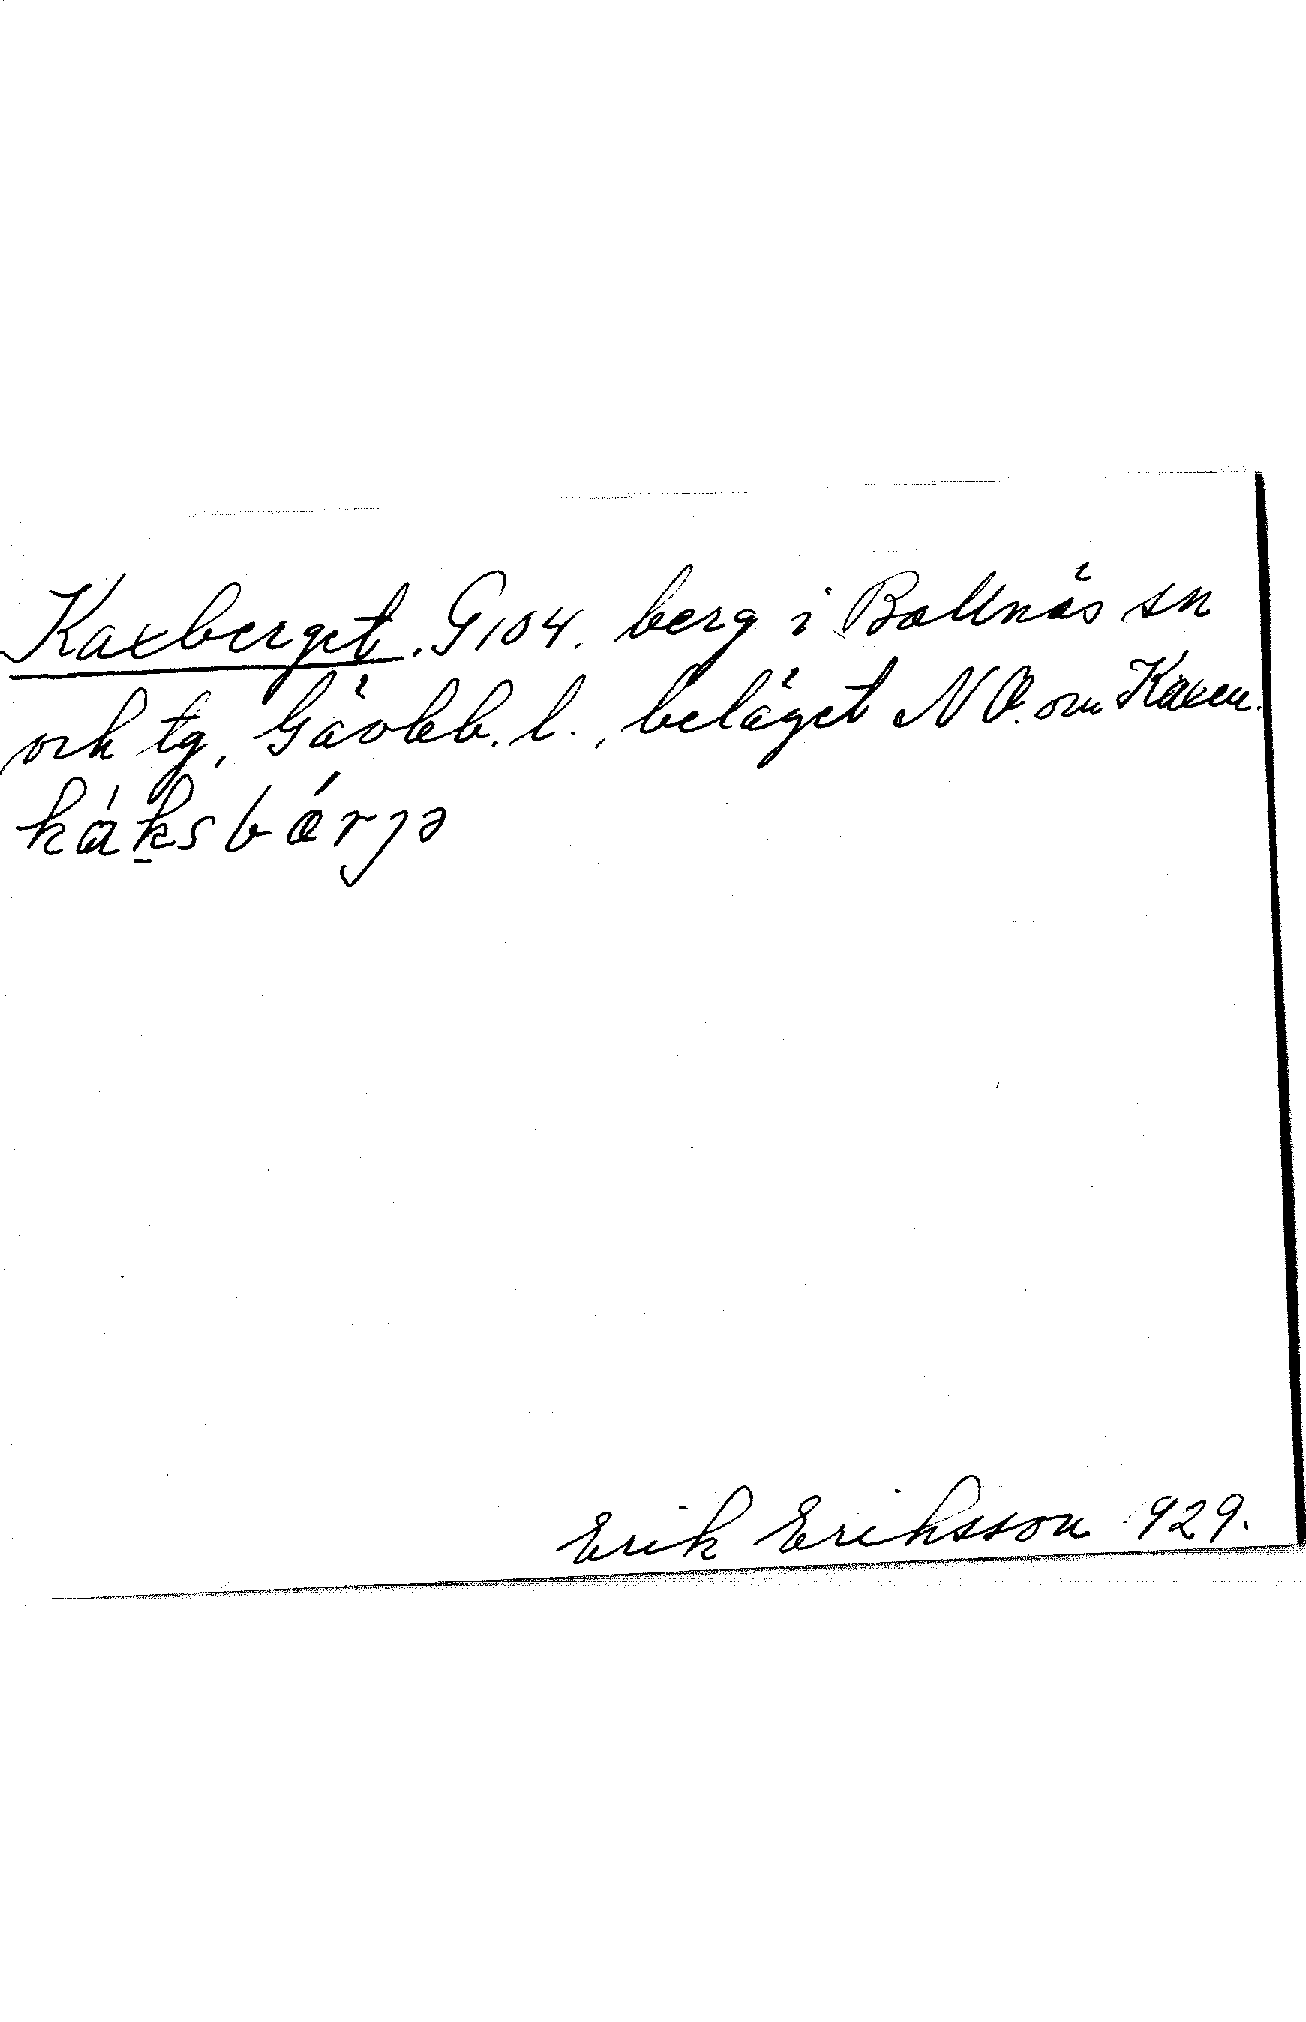 Kaxberget. G104. berg i Bollnäs sn
och tg, Gävleb. l., beläget NO. om Kaxen.
káksbärjə
Erik Eriksson 1929.